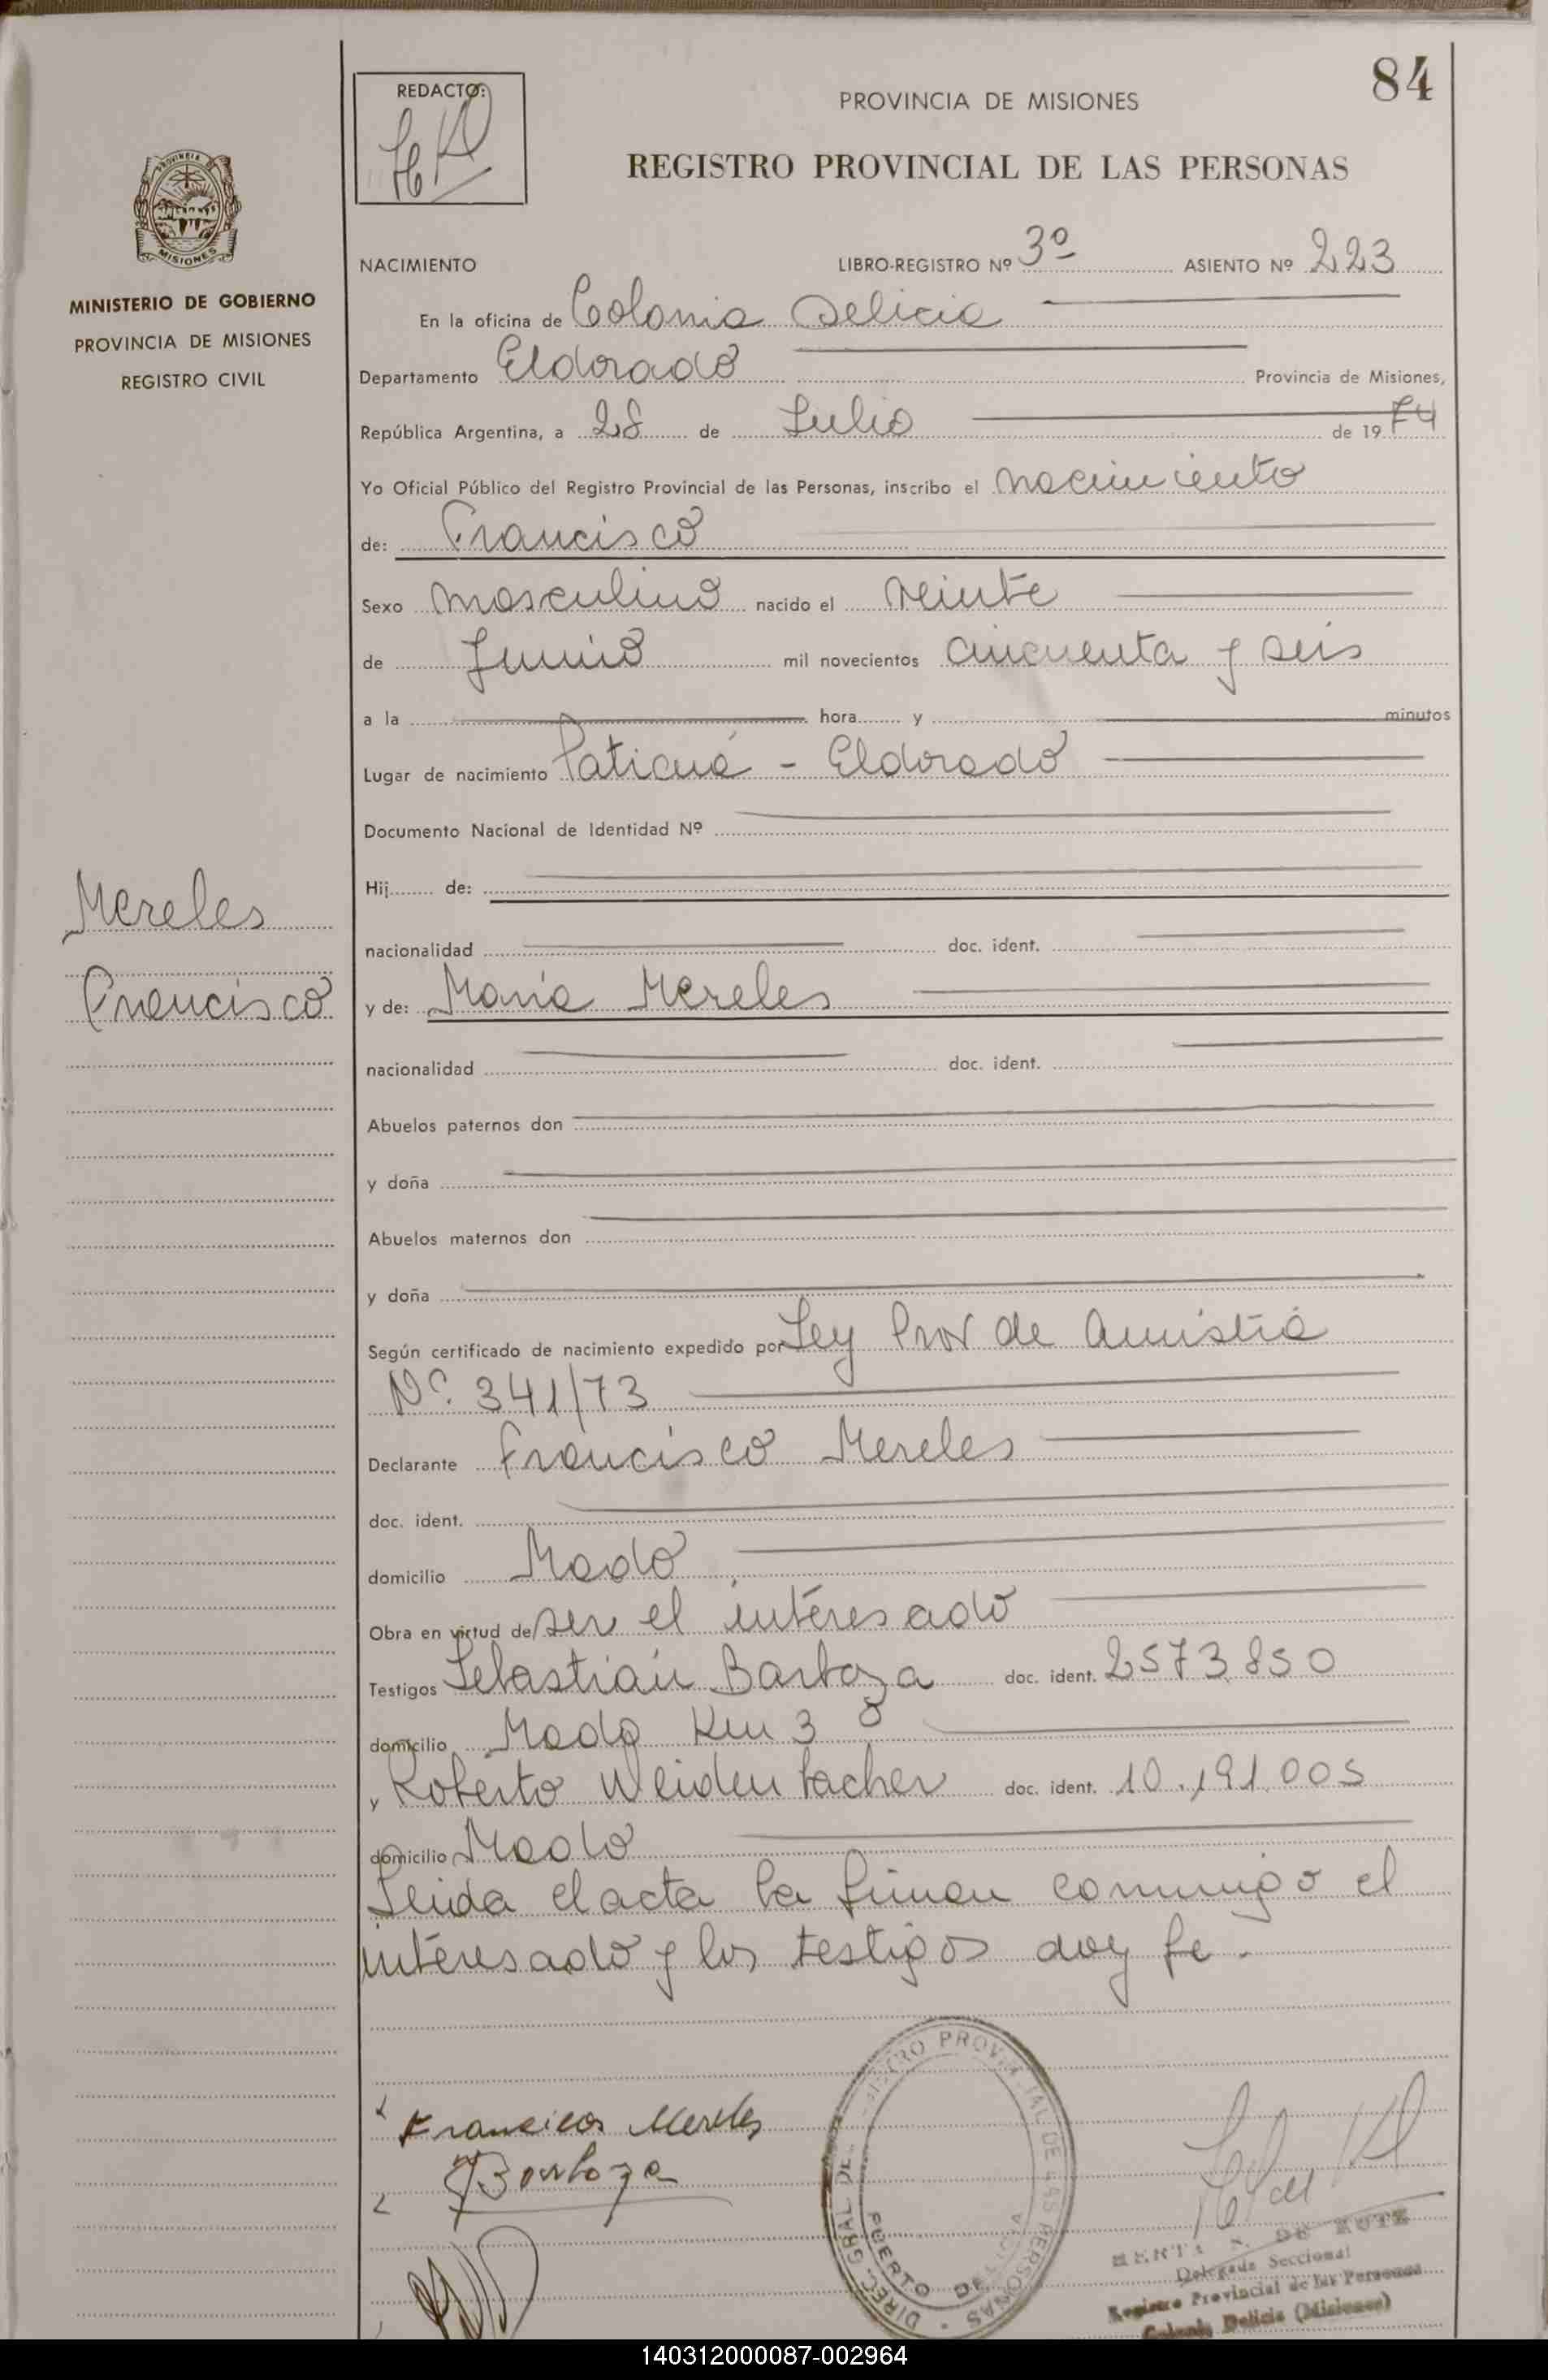 84
REDACTO:
PROVINCIA DE MISIONES
REGISTRO PROVINCIAL DE LAS PERSONAS
MISIONES
MINISTERIO DE GOBIERNO
PROVINCIA DE MISIONES
REGISTRO CIVIL
NACIMIENTO LIBRO-REGISTRO Nº 3º ASIENTO Nº 223
En la oficina de Colonia Delicia
Departamento Eldorado Provincia de Misiones,
República Argentina, a 28 de Julio de 1974
Yo Oficial Público del Registro Provincial de las Personas, inscribo el nacimiento
de: Francisco
Sexo masculino nacido el veinte
de Junio mil novecientos cincuenta y seis
a la hora y minutos
Lugar de nacimiento Paticuá - Eldorado
Documento Nacional de Identidad Nº
Hij de:
Mereles
nacionalidad doc. ident.
Francisco
y de: María Mereles
nacionalidad doc. ident.
Abuelos paternos don
y doña
Abuelos maternos don
y doña
Según certificado de nacimiento expedido por Ley Prov de Amistía
Nº 341/73
Declarante Francisco Mereles
doc. ident.
domicilio Mado
Obra en virtud de ser el interesado
Testigos Sebastián Barboza doc. ident. 2573.850
domicilio Mado Km 3
y Roberto Weidenbacher doc. ident. 10.191.005
domicilio Mado
Leida el acta la firman conmigo el
interesado y los testigos doy fe.
Francicos Mereles
Barboza
DIREC. GRAL DEL REGISTRO PROVINCIAL DE LAS PERSONAS
PUERTO DELICIA
DE KUTZ
Delegada Seccional
Registro Provincial de las Personas
Colonia Delicia (Misiones)
140312000087-002964